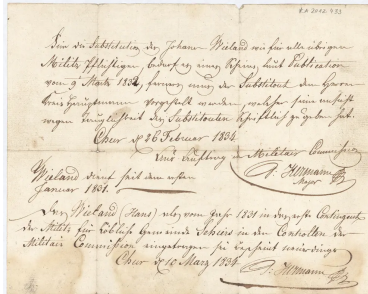 RA 2012.493
Für die Substitution des Johann Wieland wie für alle übrigen
Militz pflichtigen, bedarf es eines Scheins, laut Publication
vom 9 März 1832, ferner muss der Substitut dem Herrn
Kreis Hauptmann vorgestellt werden, welcher seine
wegen tauglichkeit des Substituten schriftlich zu geben hat.
Chur d 26 Februar 1834.
Aus Auftrag der Militair Commission
Major
Wieland dient seit dem ersten
Januar 1831.
Wieland (Hans) vom Jahr 1831 in Contingent
der Militz für Löbliche Gemeinde Schiers in den Controllen der
Militair Commission eingetragen
Chur d 10 März 1834